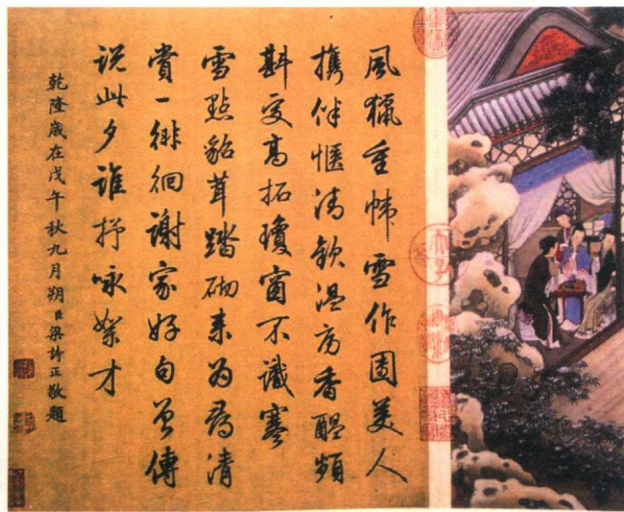 風獵重幃雪作團美人
攜伴愜清歡溫房香醞頻
斟高拓瓊窗不識寒
雪點貂茸踏砌來為尋清
賞一徘徊謝家好句曾傳
說此夕誰抒咏絮才
乾隆歲在戊午秋九月朔臣梁詩正敬題